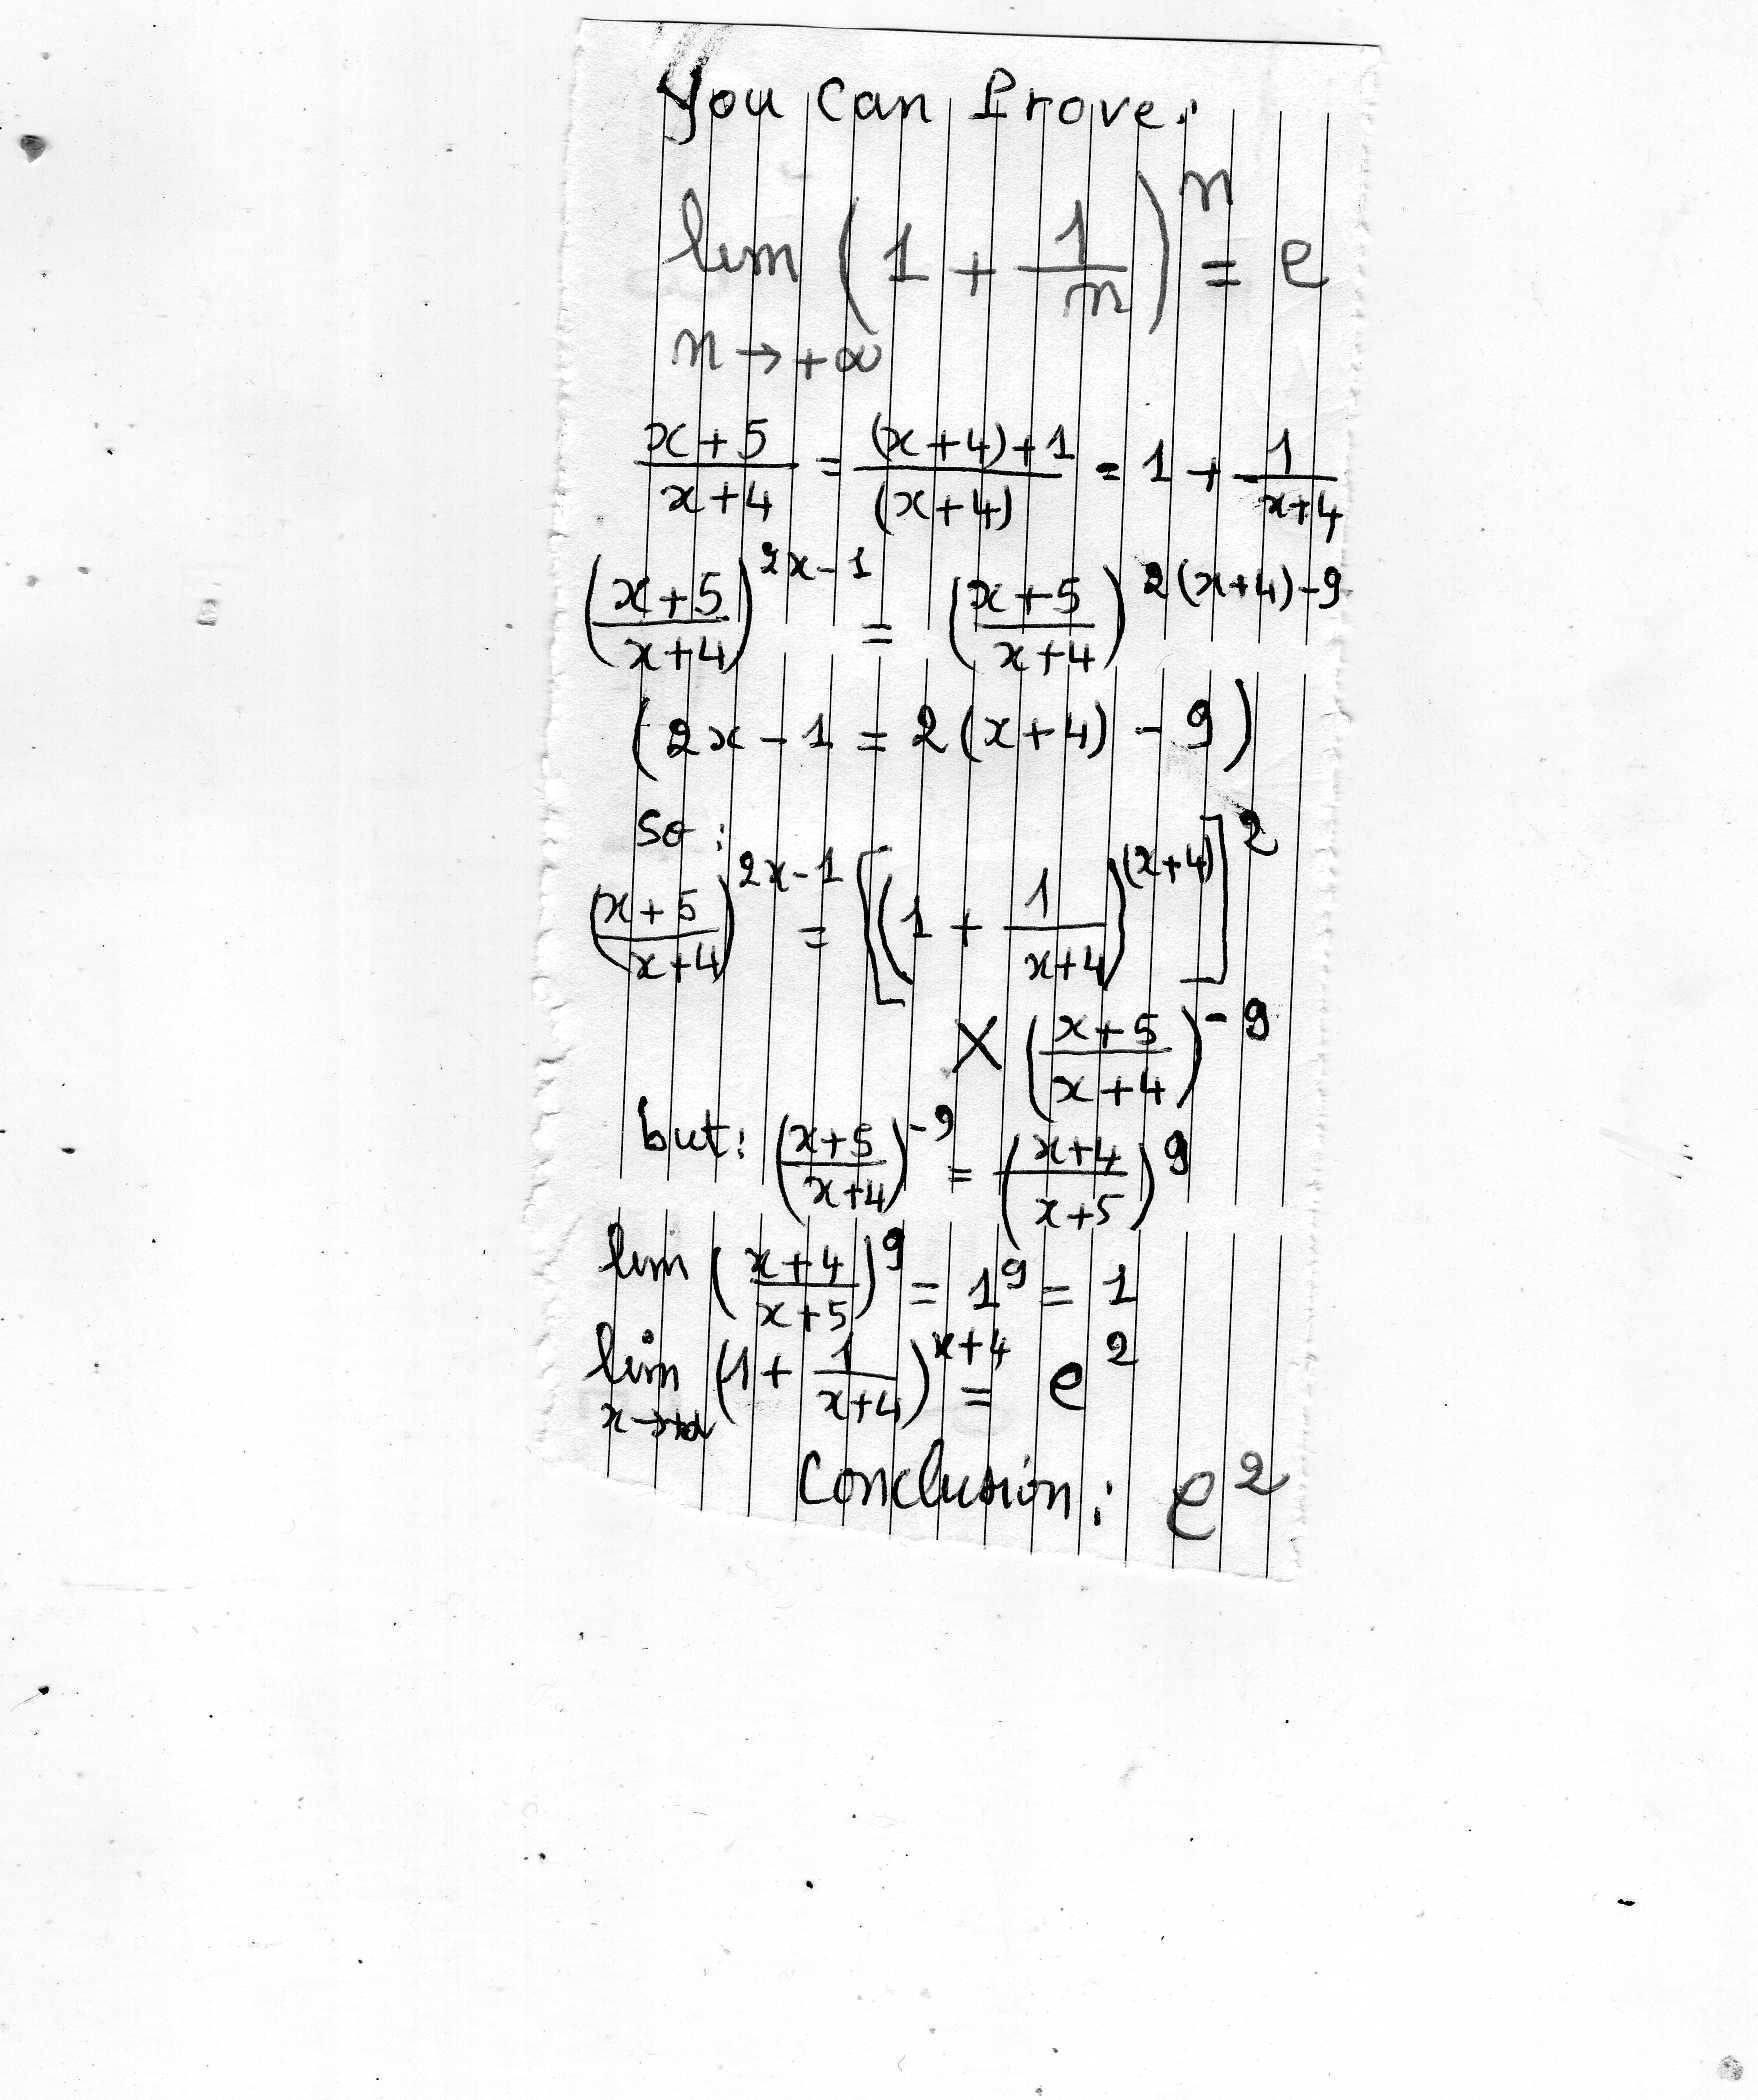 You can Prove:
lim (1 + 1/n)^n = e
n → +∞
(x+5)/(x+4) = ((x+4)+1)/(x+4) = 1 + 1/(x+4)
((x+5)/(x+4))^(2x-1) = ((x+5)/(x+4))^(2(x+4)-9)
(2x - 1 = 2(x+4) - 9)
so:
((x+5)/(x+4))^(2x-1) = [(1 + 1/(x+4))^(x+4)]^2
× ((x+5)/(x+4))^-9
but: ((x+5)/(x+4))^-9 = ((x+4)/(x+5))^9
lim ((x+4)/(x+5))^9 = 1^9 = 1
lim (1 + 1/(x+4))^(x+4) = e^2
x→+∞
Conclusion: e^2